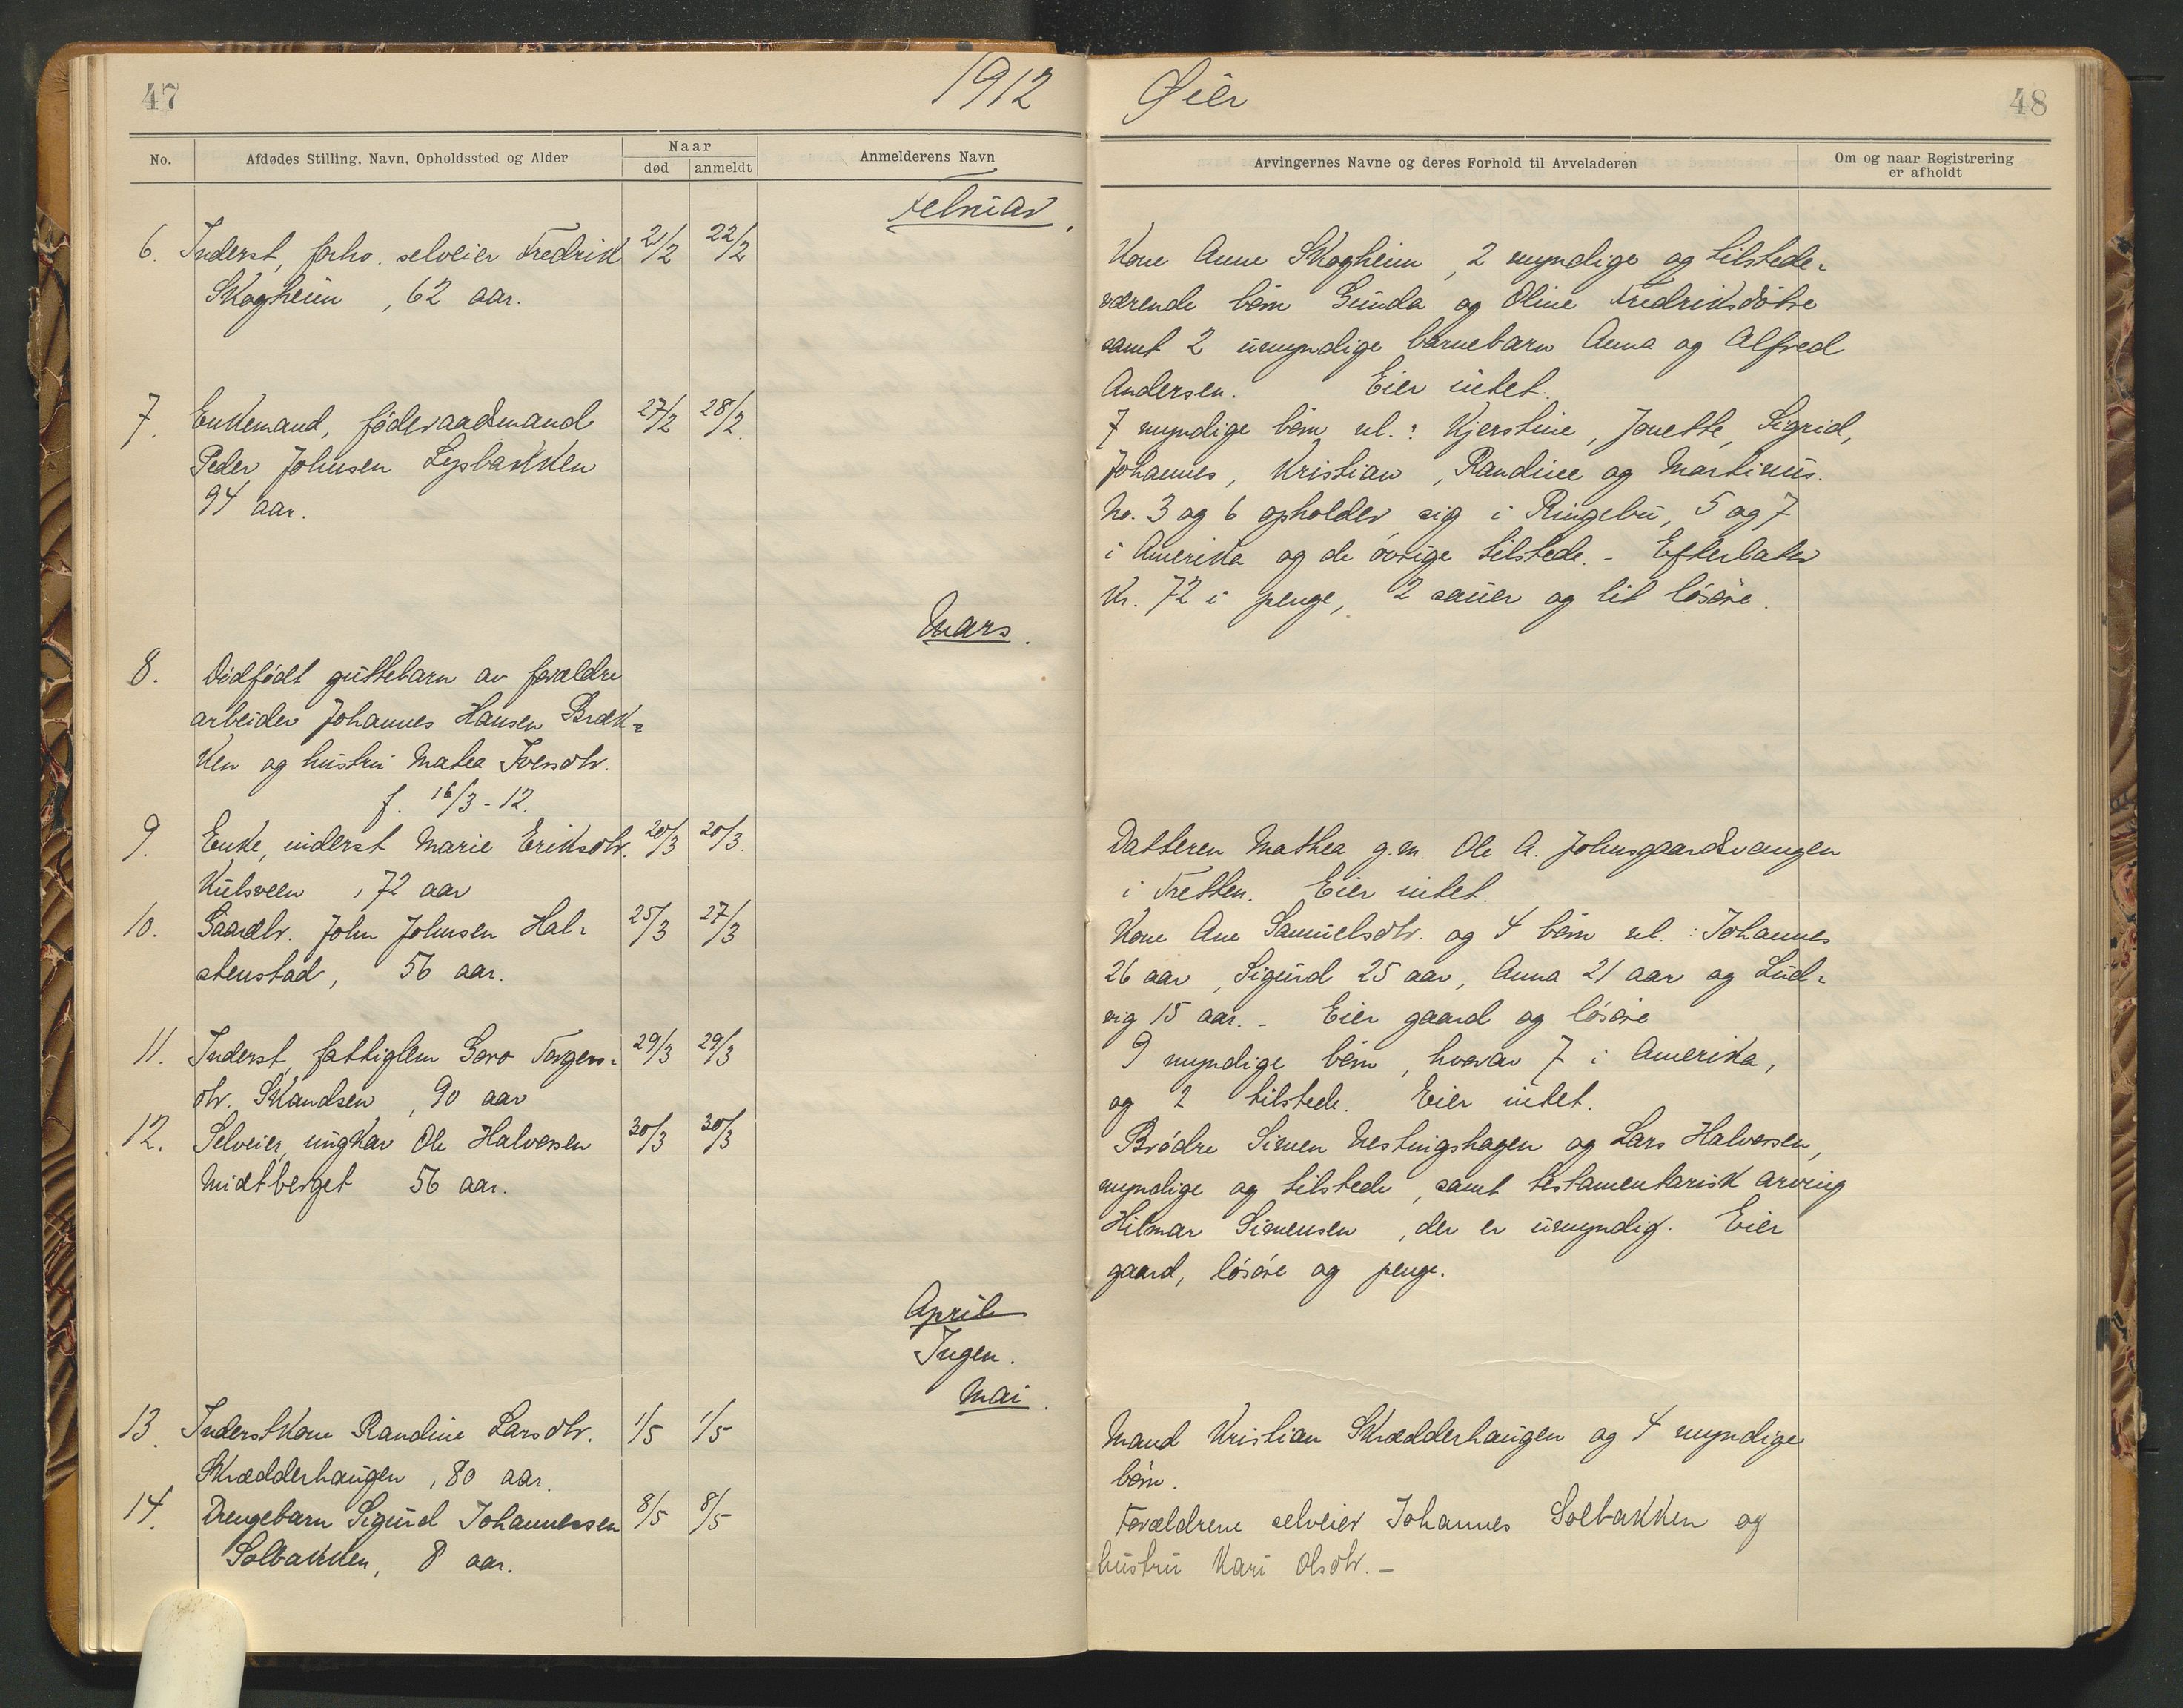 47
1912
No.
Afdødes Stilling, Navn, Opholdssted og Alder
Naar
død
anmeldt
Anmelderens Navn
Februar.
6. Inderst, forhv. selveier Fredrik 21/2 22/2
Skogheim, 62 aar.
7. Enkemand, föderaadsmand 27/2 28/2.
Peder Johnsen Lysbakken
94 aar.
Mars.
8. Dödfödt guttebarn av forældre
arbeider Johannes Hansen Bræk-
ken og hustru Matea Iversdtr.
f. 16/3-12.
9. Enke, inderst Marie Eriksdtr. 20/3 20/3.
Kutsveen, 72 aar
10. Gaardbr. John Johnsen Hal- 25/3 27/3
stenstad, 56 aar.
11. Inderst, fattiglem Goro Torgers- 29/3 29/3
dtr. Skandsen, 90 aar
12. Selveier, ungkar Ole Halvorsen 30/3 30/3
Midtberget 56 aar.
April
Ingen.
Mai.
13. Inderstkone Randine Larsdtr. 1/5 1/5
Skrædderhaugen, 80 aar.
14. Drengebarn Sigurd Johannessen 8/5 8/5
Solbakken, 8 aar.
Øier
48
Arvingernes Navne og deres Forhold til Arveladeren
Om og naar Registrering
er afholdt
Kone Anne Skogheim, 2 myndige og tilstede-
værende börn Gunda og Oline Fredriksdötre
samt 2 umyndige barnebarn Anna og Alfred
Andersen. Eier intet.
7 myndige börn nl.: Kjerstine, Jonette, Sigrid,
Johannes, Kristian, Randine og Martinus.
No. 3 og 6 opholder sig i Ringebu, 5 og 7
i Amerika og de övrige tilstede. - Efterlater
Kr. 72 i penge, 2 sauer og lit lösöre.
Datteren Mathea g.m. Ole A. Johnsgaardsvangen
i Tretten. Eier intet.
Kone Ane Samuelsdtr. og 4 börn nl.: Johannes
26 aar, Sigurd 25 aar, Anna 21 aar og Lud-
vig 15 aar. - Eier gaard og lösöre
9 myndige börn, hvorav 7 i Amerika,
og 2 tilstede. Eier intet.
Brödre Simen Nestingshagen og Lars Halvorsen,
myndige og tilstede, samt testamentarisk arving
Hilmar Simensen, der er umyndig. Eier
gaard, lösöre og penge.
Mand Kristian Skrædderhaugen og 4 myndige
börn.
Forældrene selveier Johannes Solbakken og
hustru Kari Olsdtr. -